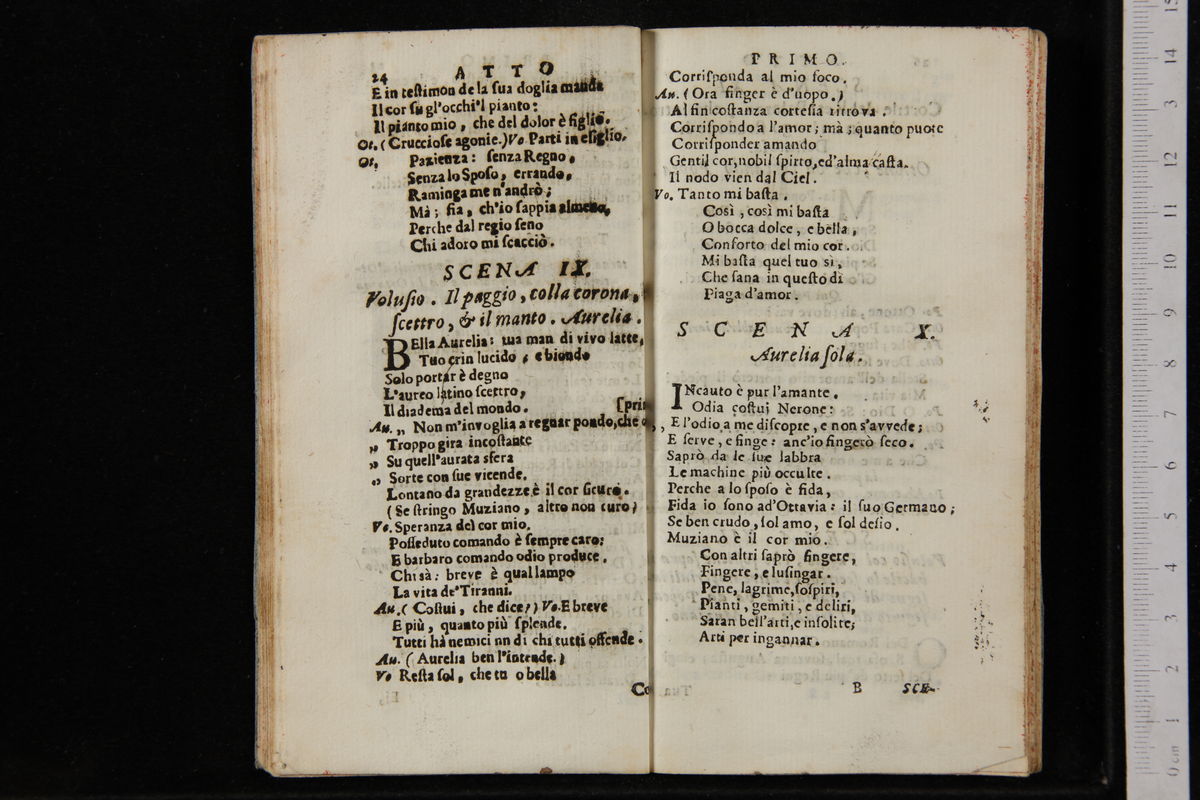 24 ATTO
E in teſtimon de la ſua doglia manda
Il cor ſu gl'occhi'l pianto:
Il pianto mio, che del dolor è figlio.
Ot. (Crucciose agonie.) Vo Parti in eſiglio.
Ot. Pazienza: ſenza Regno,
Senza lo Spoſo, errando,
Raminga me n'andrò;
Mà; ſia, ch'io ſappia almeno,
Perche dal regio ſeno
Chi adoro mi ſcacciò.
SCENA IX.
Voluſio. Il paggio, colla corona,
ſcettro, & il manto. Aurelia.
BElla Aurelia: tua man di vivo latte,
Tuo crin lucido, e biondo
Solo portar è degno
L'aureo latino ſcettro,
Il diadema del mondo. [pri
Au. „ Non m'invoglia a regnar pondo, che
„ Troppo gira incoſtante
„ Su quell'aurata sfera
„ Sorte con ſue vicende.
Lontano da grandezze è il cor ſicuro.
(Se ſtringo Muziano, altro non curo)
Vo. Speranza del cor mio.
Poſſeduto comando è ſempre caro:
E barbaro comando odio produce.
Chi sà: breve è qual lampo
La vita de' Tiranni.
Au. (Coſtui, che dice?) Vo. E breve
E più, quanto più ſplende.
Tutti hà nemici un dì chi tutti offende.
Au. (Aurelia ben l'intende.)
Vo Reſta ſol, che tu o bella
Co
PRIMO.
Corriſponda al mio foco.
Au. (Ora finger è d'uopo.)
Al fin coſtanza corteſia ritrova.
Corriſpondo a l'amor; mà; quanto puote
Corriſponder amando
Gentil cor, nobil ſpirto, ed'alma caſta.
Il nodo vien dal Ciel.
Vo. Tanto mi baſta.
Così, così mi baſta
O bocca dolce, e bella,
Conforto del mio cor.
Mi baſta quel tuo sì,
Che ſana in queſto dì
Piaga d'amor.
SCENA X.
Aurelia ſola.
INcauto è pur l'amante.
Odia coſtui Nerone:
, E l'odio a me diſcopre, e non s'avvede;
E ſerve, e finge: anc'io fingerò ſeco.
Saprò da le ſue labbra
Le machine più occulte.
Perche a lo ſpoſo è fida,
Fida io ſono ad'Ottavia: il ſuo Germano;
Se ben crudo, ſol amo, e ſol deſio.
Muziano è il cor mio.
Con altri ſaprò fingere,
Fingere, e luſingar.
Pene, lagrime, ſoſpiri,
Pianti, gemiti, e deliri,
Saran bell'arti, e inſolite;
Arti per ingannar.
B SCE-